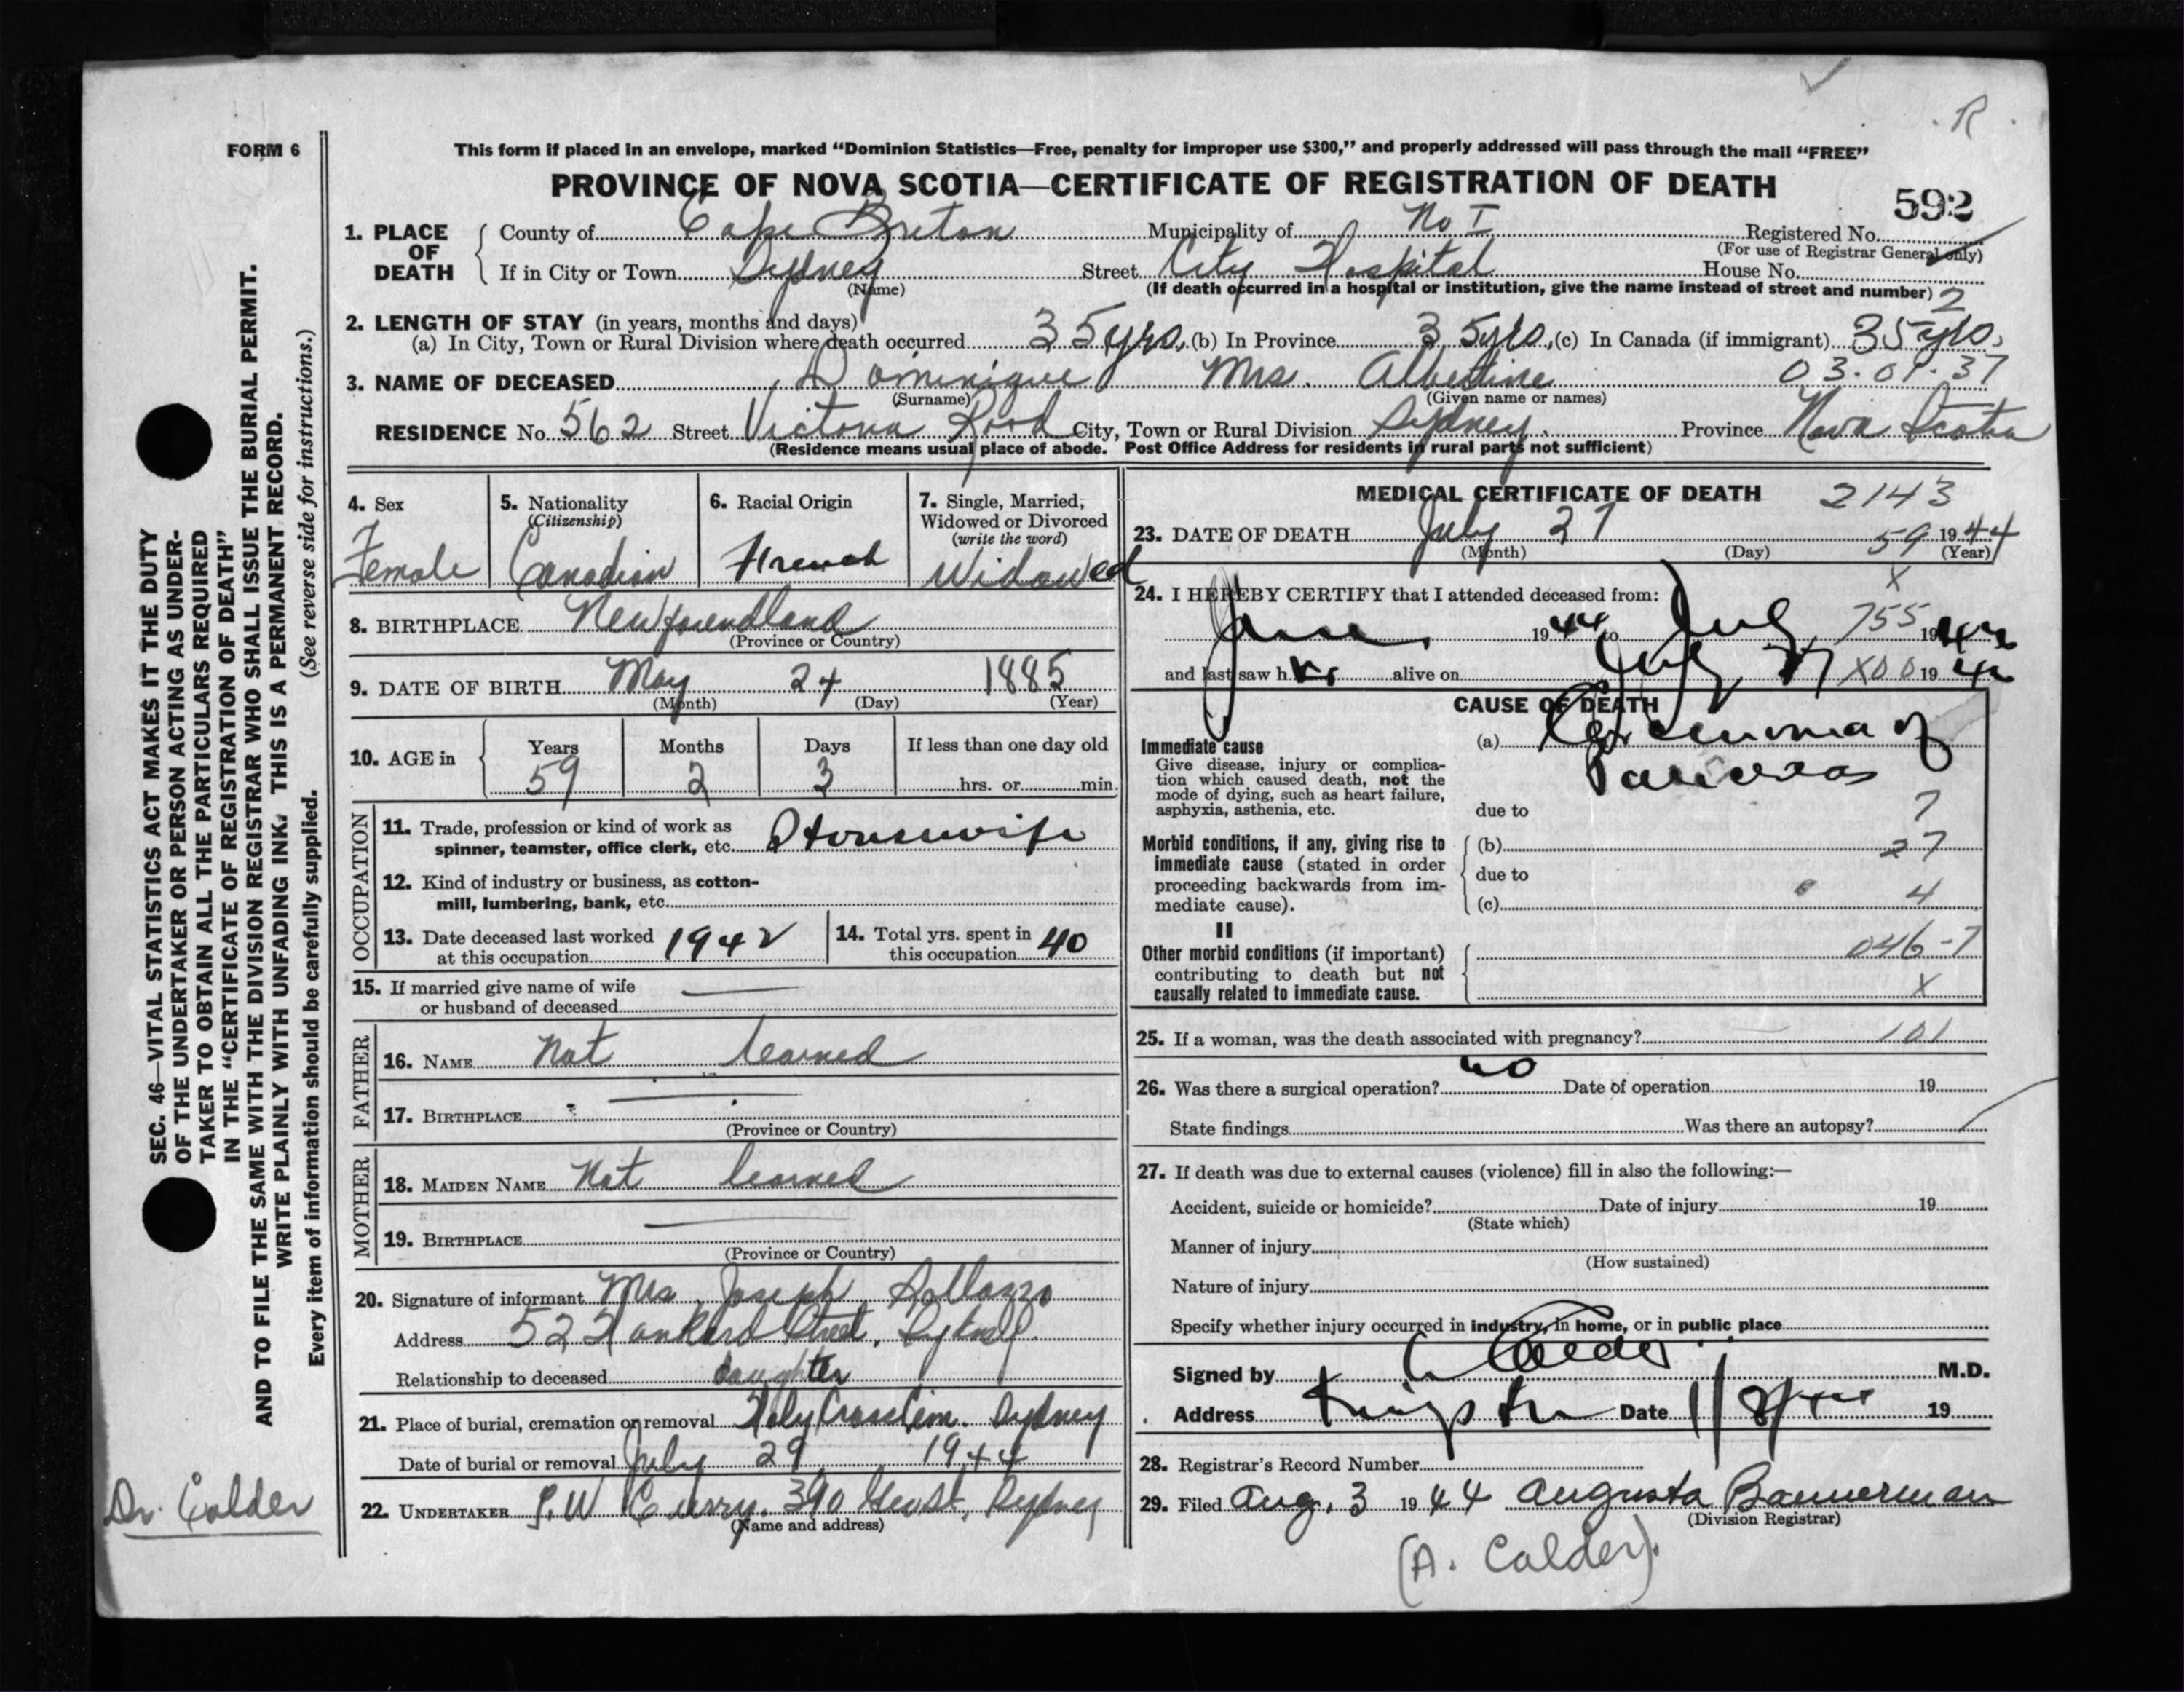 R
FORM 6
This form if placed in an envelope, marked “Dominion Statistics—Free, penalty for improper use $300,” and properly addressed will pass through the mail “FREE”
PROVINCE OF NOVA SCOTIA—CERTIFICATE OF REGISTRATION OF DEATH
592
1. PLACE OF DEATH
County of Cape Breton Municipality of No I Registered No.
(For use of Registrar General only)
If in City or Town Sydney Street City Hospital House No.
(Name) (If death occurred in a hospital or institution, give the name instead of street and number) 2
2. LENGTH OF STAY (in years, months and days)
(a) In City, Town or Rural Division where death occurred 35 yrs. (b) In Province 35 yrs. (c) In Canada (if immigrant) 35 yrs.
3. NAME OF DECEASED Dominique Mrs. Albertine 03.01.37
(Surname) (Given name or names)
RESIDENCE No. 562 Street Victoria Road City, Town or Rural Division Sydney Province Nova Scotia
(Residence means usual place of abode. Post Office Address for residents in rural parts not sufficient)
4. Sex
Female
5. Nationality
(Citizenship)
Canadian
6. Racial Origin
French
7. Single, Married, Widowed or Divorced
(write the word)
Widowed
8. BIRTHPLACE Newfoundland
(Province or Country)
9. DATE OF BIRTH May 24 1885
(Month) (Day) (Year)
10. AGE in
Years Months Days If less than one day old
59 2 3 hrs. or min.
OCCUPATION
11. Trade, profession or kind of work as
spinner, teamster, office clerk, etc. Housewife
12. Kind of industry or business, as cotton-
mill, lumbering, bank, etc.
13. Date deceased last worked
at this occupation 1942
14. Total yrs. spent in
this occupation 40
15. If married give name of wife
or husband of deceased
FATHER
16. NAME Not learned
17. BIRTHPLACE
(Province or Country)
MOTHER
18. MAIDEN NAME Not learned
19. BIRTHPLACE
(Province or Country)
20. Signature of informant Mrs Joseph
Address 52 Street, Sydney
Relationship to deceased daughter
21. Place of burial, cremation or removal Holy Cross Cem. Sydney
Date of burial or removal July 29 1944
22. UNDERTAKER S.W Curry. 390 Geo St. Sydney
(Name and address)
MEDICAL CERTIFICATE OF DEATH 2143
23. DATE OF DEATH July 27 59 1944
(Month) (Day) (Year)
X
24. I HEREBY CERTIFY that I attended deceased from:
June 1944 to July 755 1944
and last saw her alive on July 27 X00 1944
CAUSE OF DEATH
Immediate cause
Give disease, injury or complica-
tion which caused death, not the
mode of dying, such as heart failure,
asphyxia, asthenia, etc.
(a) Carcinoma of
Pancreas
due to 7
Morbid conditions, if any, giving rise to
immediate cause (stated in order
proceeding backwards from im-
mediate cause).
(b) 27
due to
(c) 4
II
Other morbid conditions (if important)
contributing to death but not
causally related to immediate cause.
046-7
X
25. If a woman, was the death associated with pregnancy? 101
26. Was there a surgical operation? no Date of operation 19
State findings Was there an autopsy?
27. If death was due to external causes (violence) fill in also the following:—
Accident, suicide or homicide? Date of injury 19
(State which)
Manner of injury
(How sustained)
Nature of injury
Specify whether injury occurred in industry, in home, or in public place
Signed by A Calder M.D.
Address Date 1/8/44 19
28. Registrar's Record Number
29. Filed Aug. 3 1944 Augusta Bannerman
(Division Registrar)
(A. Calder).
SEC. 46—VITAL STATISTICS ACT MAKES IT THE DUTY
OF THE UNDERTAKER OR PERSON ACTING AS UNDER-
TAKER TO OBTAIN ALL THE PARTICULARS REQUIRED
IN THE “CERTIFICATE OF REGISTRATION OF DEATH”
AND TO FILE THE SAME WITH THE DIVISION REGISTRAR WHO SHALL ISSUE THE BURIAL PERMIT.
WRITE PLAINLY WITH UNFADING INK. THIS IS A PERMANENT RECORD.
Every item of information should be carefully supplied. (See reverse side for instructions.)
Dr. Calder